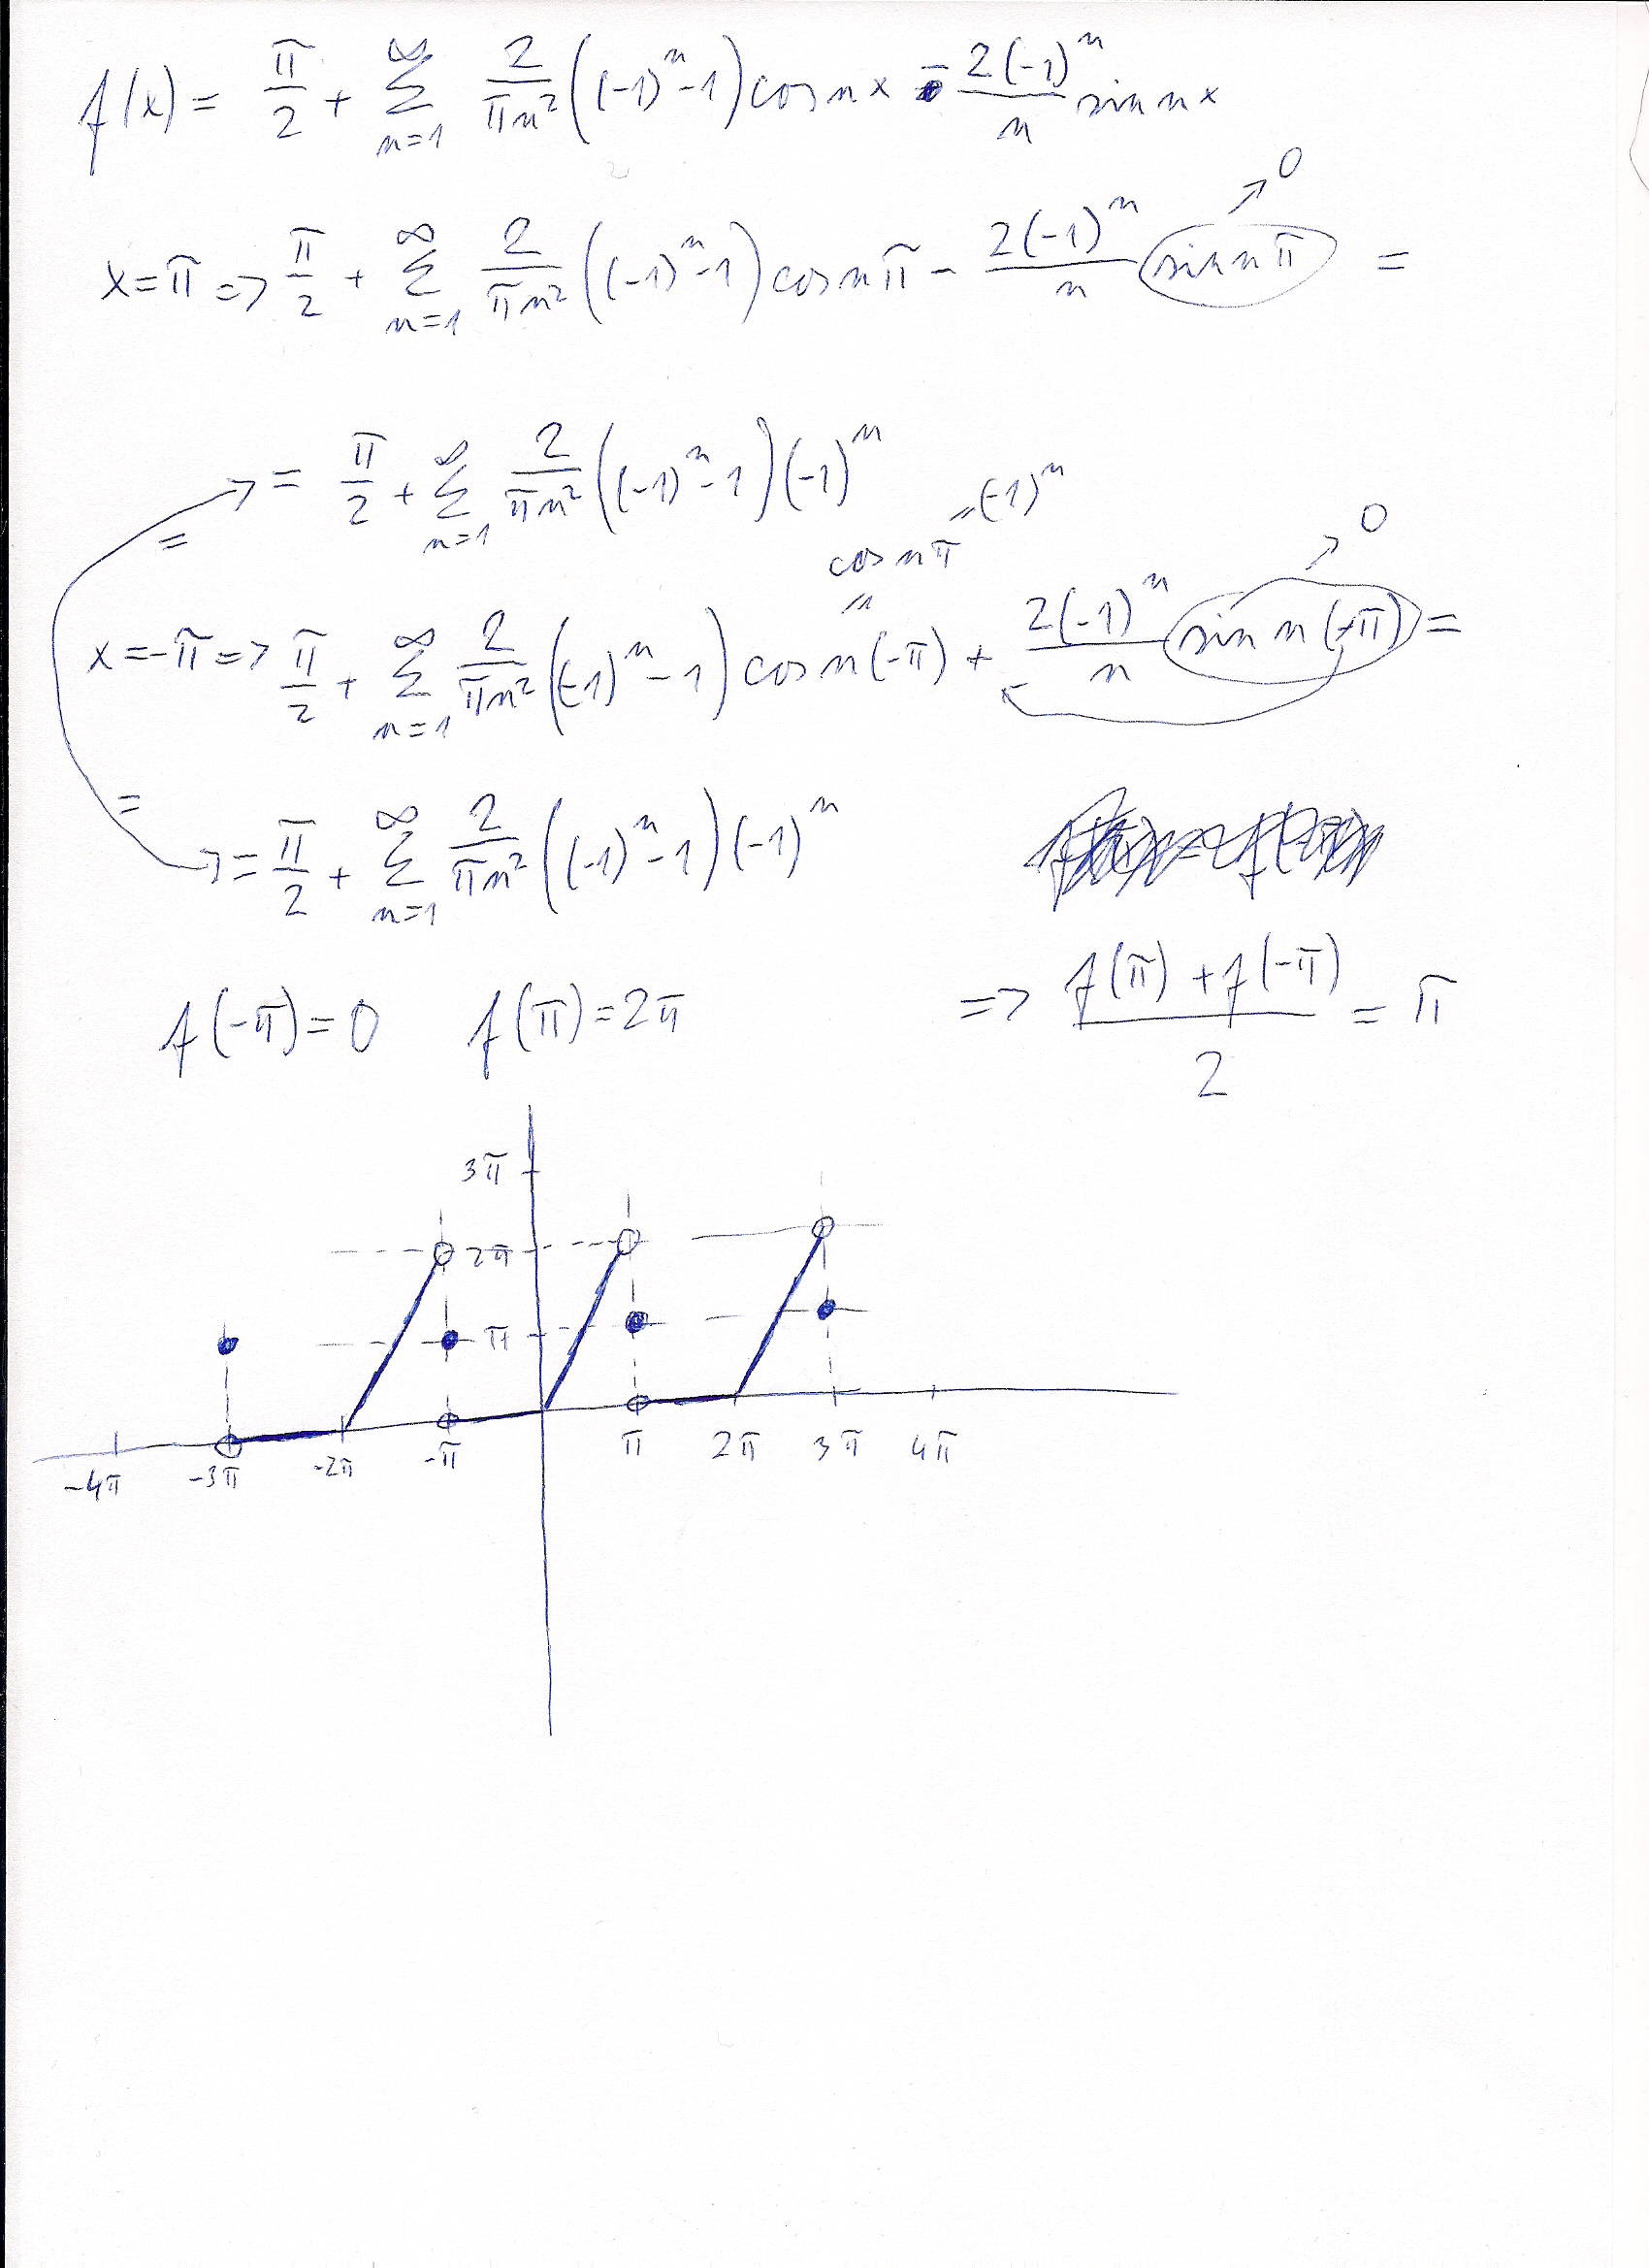 f(x) = π/2 + Σ_{n=1}^{∞} 2/(πn²) ((-1)^n - 1) cos nx - 2(-1)^n/n sin nx
x = π => π/2 + Σ_{n=1}^{∞} 2/(πn²) ((-1)^n - 1) cos nπ - 2(-1)^n/n sin nπ → 0 =
= π/2 + Σ_{n=1}^{∞} 2/(πn²) ((-1)^n - 1) (-1)^n
=
cos nπ = (-1)^n
=
x = -π => π/2 + Σ_{n=1}^{∞} 2/(πn²) ((-1)^n - 1) cos n(-π) + 2(-1)^n/n sin n(+π) → 0 =
=
= π/2 + Σ_{n=1}^{∞} 2/(πn²) ((-1)^n - 1) (-1)^n
f(-π) = 0 f(π) = 2π => (f(π) + f(-π))/2 = π
3π
2π
π
-4π -3π -2π -π π 2π 3π 4π